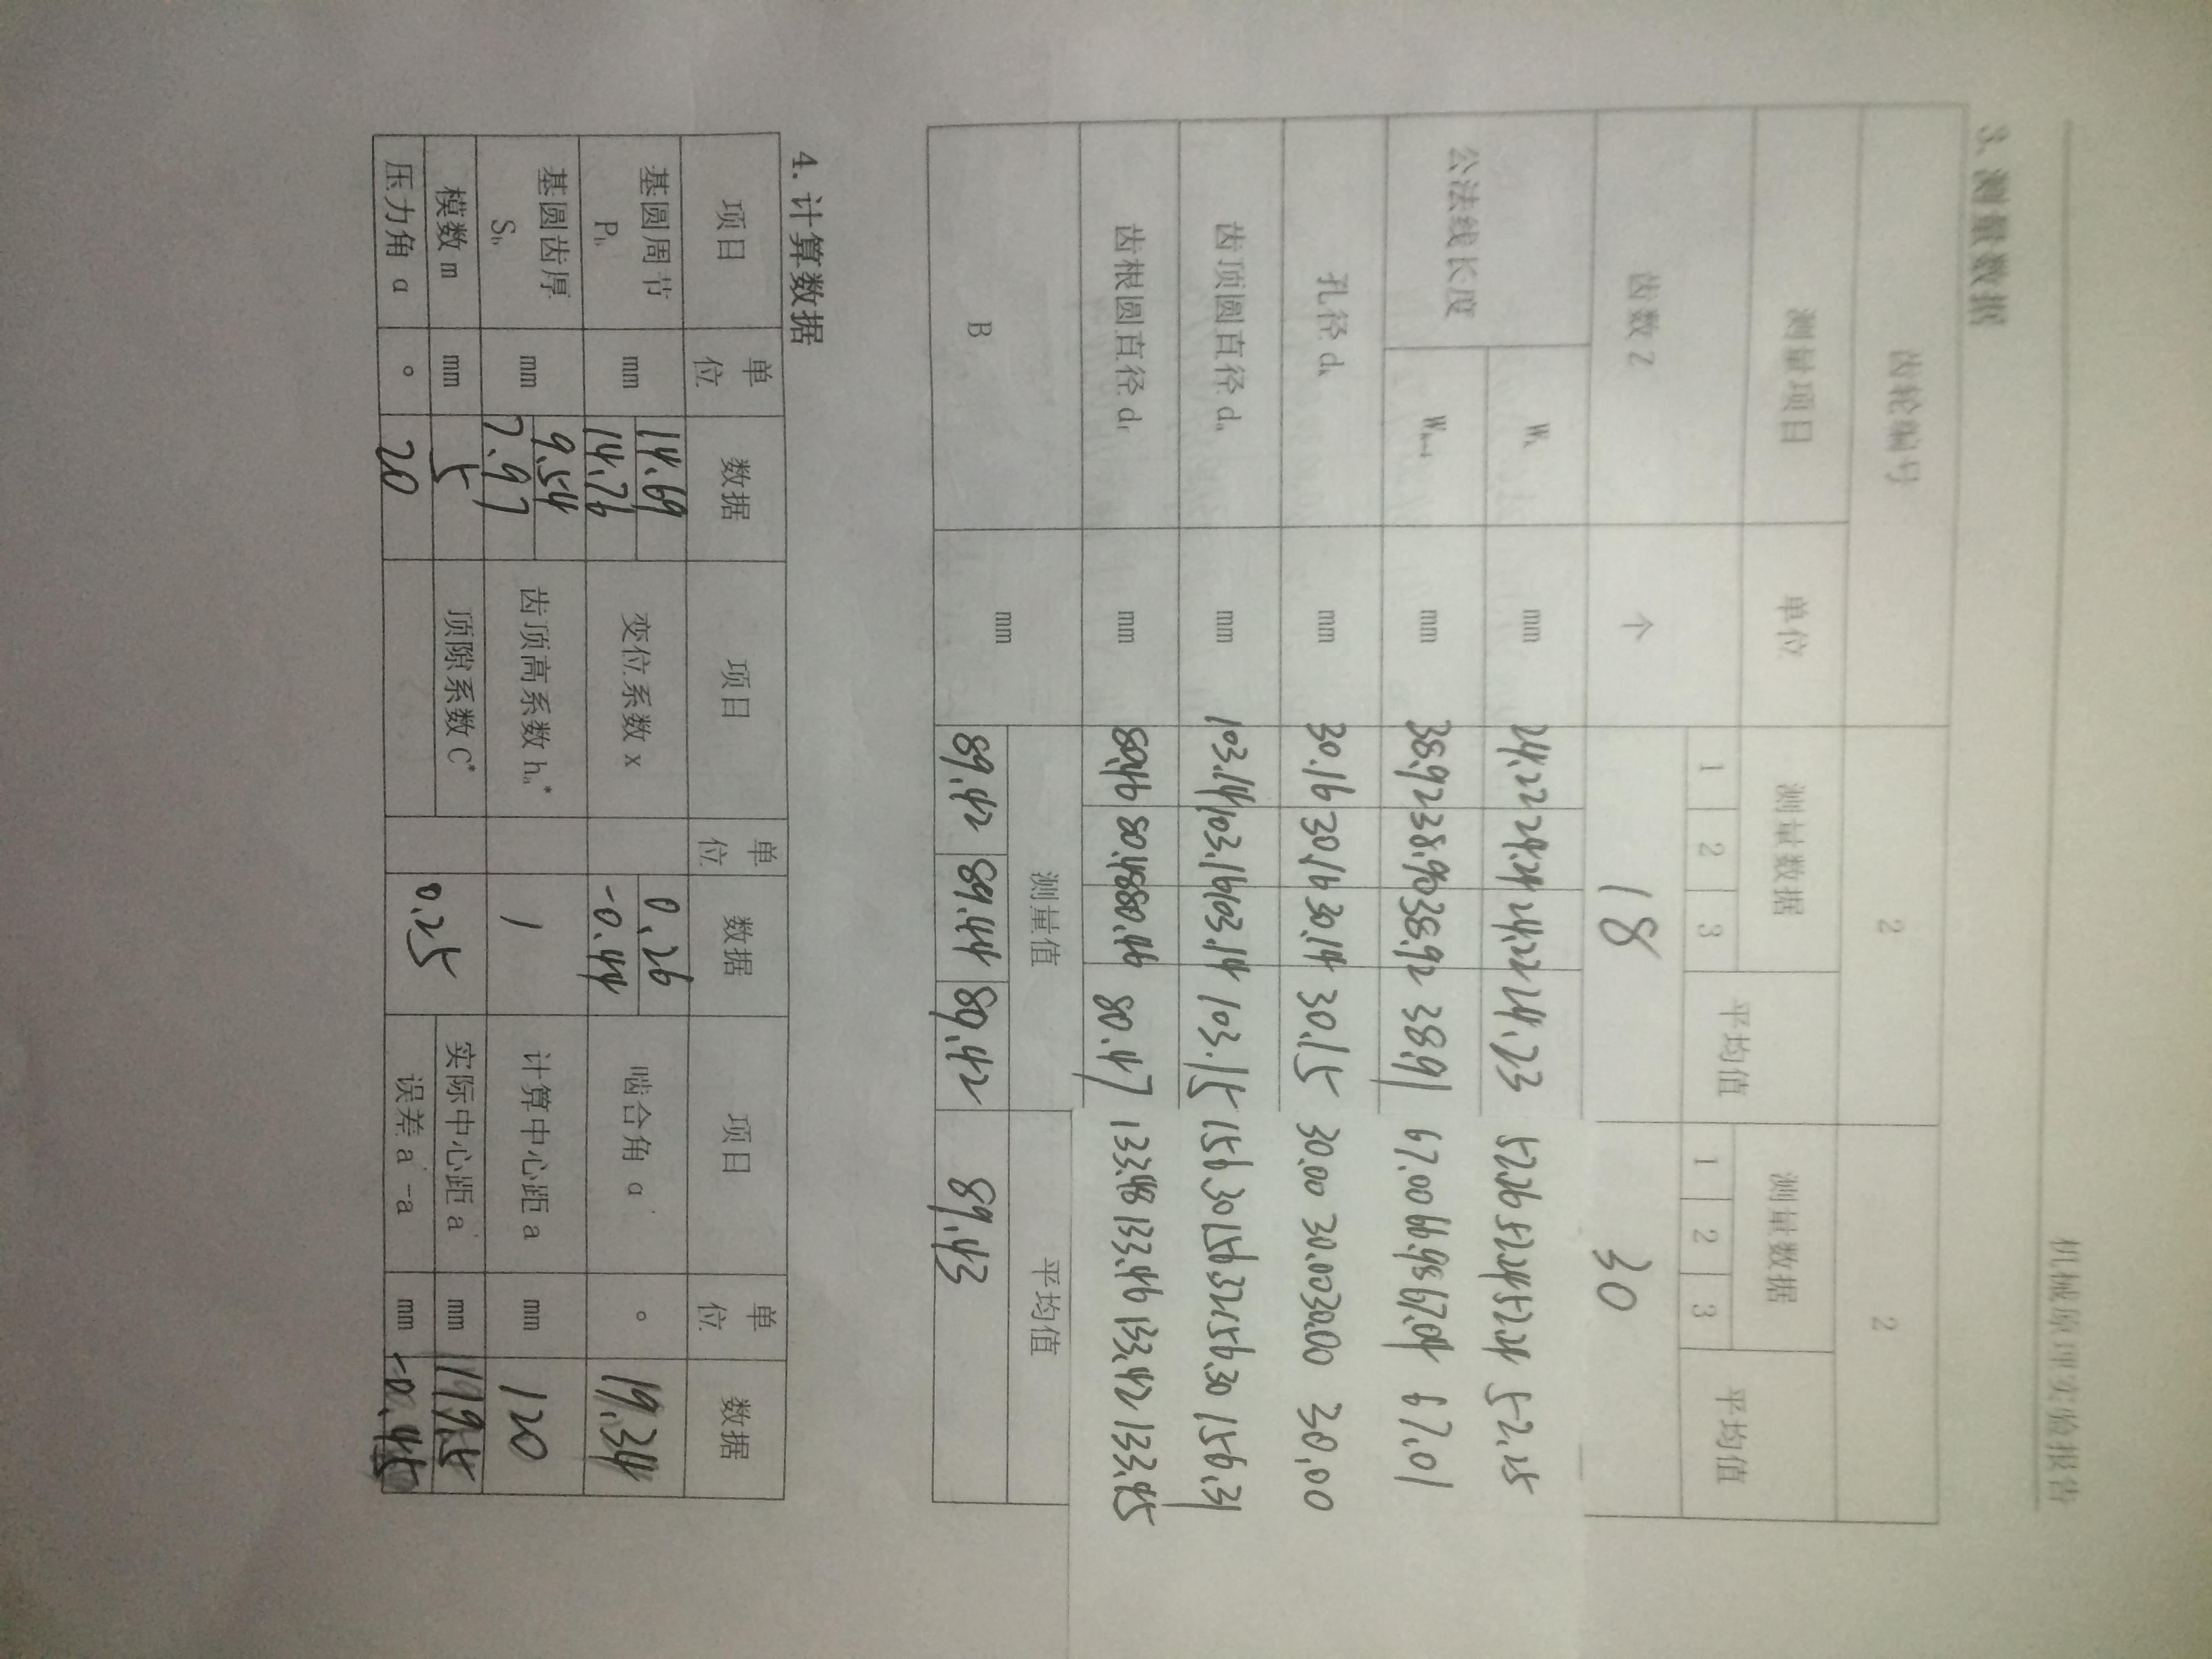 机械原理实验报告
3. 测量数据
齿轮编号 2 2
测量项目 单位 测量数据 平均值 测量数据 平均值
1 2 3 1 2 3
齿数 Z 个 18 30
公法线长度
Wₖ mm 24.22 24.24 24.22 24.23 52.26 52.24 52.24 52.25
Wₖ₊₁ mm 38.92 38.90 38.92 38.91 67.00 66.98 67.04 67.01
孔径 dₖ mm 30.16 30.16 30.14 30.15 30.00 30.00 30.00 30.00
齿顶圆直径 dₐ mm 103.14 103.16 103.14 103.15 156.30 156.32 156.30 156.31
齿根圆直径 d_f mm 80.46 80.48 80.46 80.47 133.48 133.46 133.42 133.45
B mm 测量值 平均值
89.42 89.44 89.42 89.43
4. 计算数据
项目 单位 数据 项目 单位 数据 项目 单位 数据
基圆周节 P_b mm 14.69 14.76 变位系数 x 0.26 -0.44 啮合角 α' ° 19.34
基圆齿厚 S_b mm 9.54 7.97 齿顶高系数 hₐ* 1 计算中心距 a mm 120
模数 m mm 5 顶隙系数 C* 0.25 实际中心距 a' mm
压力角 α ° 20 误差 a'-a mm